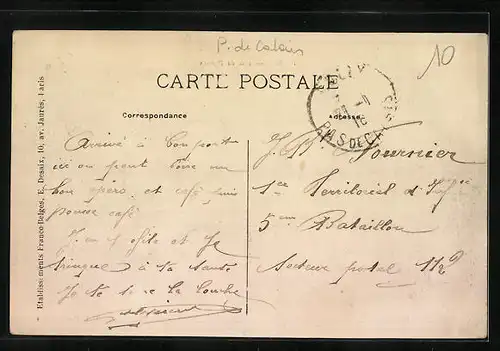 P. de Calais
10
CARTE POSTALE
Correspondance
Adresse
PAS DE CALAIS
16
Arrivé à bon port
ici on peut boire un
bon apéro et café puis
pousse café
J'en profite et je
trinque à ta santé
Je te serre la louche
J. Fournier
1ère Territorial d'Infie
5ème Bataillon
Secteur postal 112
Etablissements Franco-Belges, E. Desaix, 10, av. Jaurès, Paris